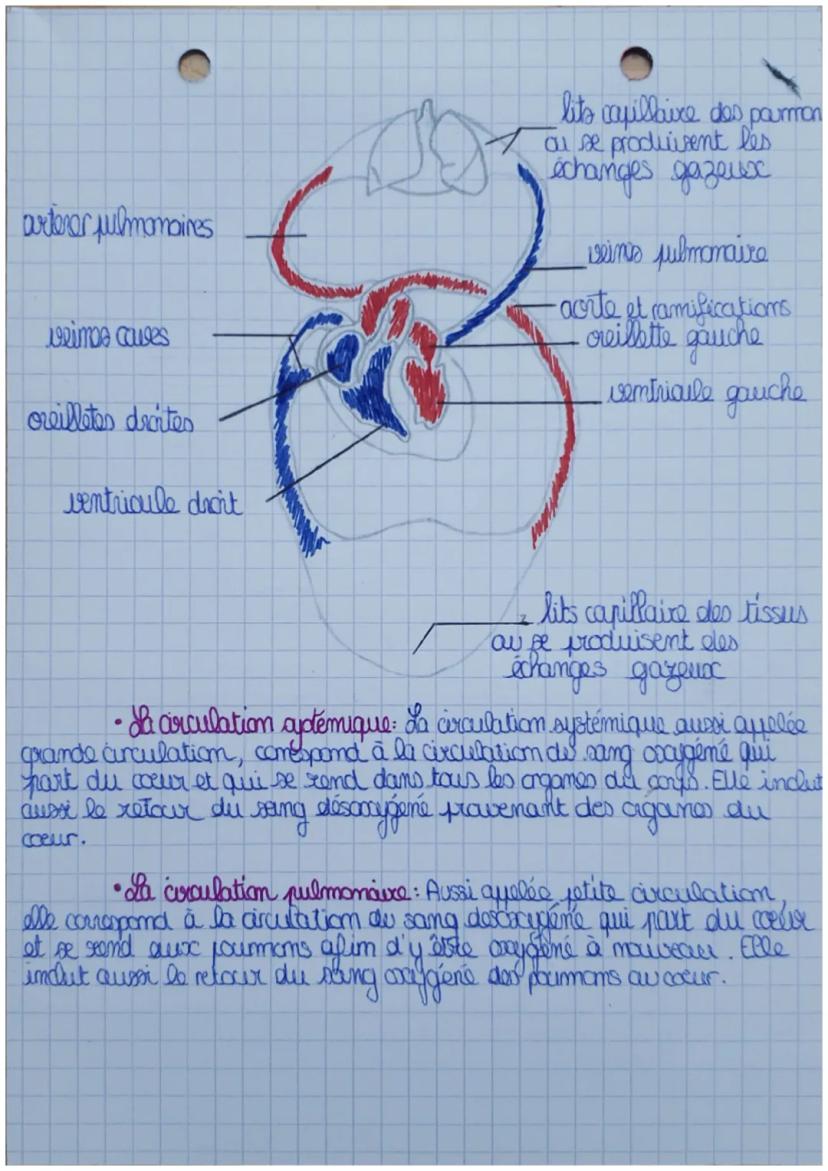 lits capillaire des poumon
où se produisent les
échanges gazeux
artères pulmonaires
veines pulmonaire
aorte et ramifications
veines caves
oreillette gauche
ventricule gauche
oreilletes droites
ventricule droit
lits capillaire des tissus
où se produisent des
échanges gazeux
• La circulation systémique: La circulation systémique aussi appelée
grande circulation, correspond à la circulation du sang oxygéné qui
part du coeur et qui se rend dans tous les organes du corps. Elle inclut
aussi le retour du sang désoxygéné provenant des organes du
coeur.
• La circulation pulmonaire: Aussi appelée petite circulation,
elle correspond à la circulation du sang desoxygéné qui part du coeur
et se rend aux poumons afin d'y être oxygéné à nouveau. Elle
inclut aussi le retour du sang oxygéné des poumons au coeur.